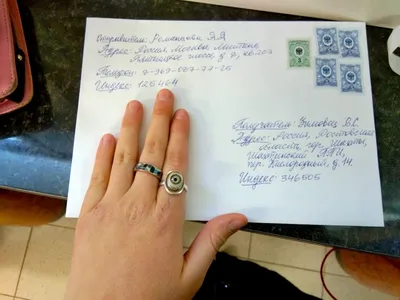 Отправитель: Романцова А.А
Адрес: Россия Москва, Митино
шоссе д. 2, кв. 207
Телефон: 8-967-067-77-25
Индекс: 125464
3
Получатель: С.
Адрес: Россия, Ростовская
область, гор. Шахты,
Шахтинский
пер. д. 14
Индекс: 346505